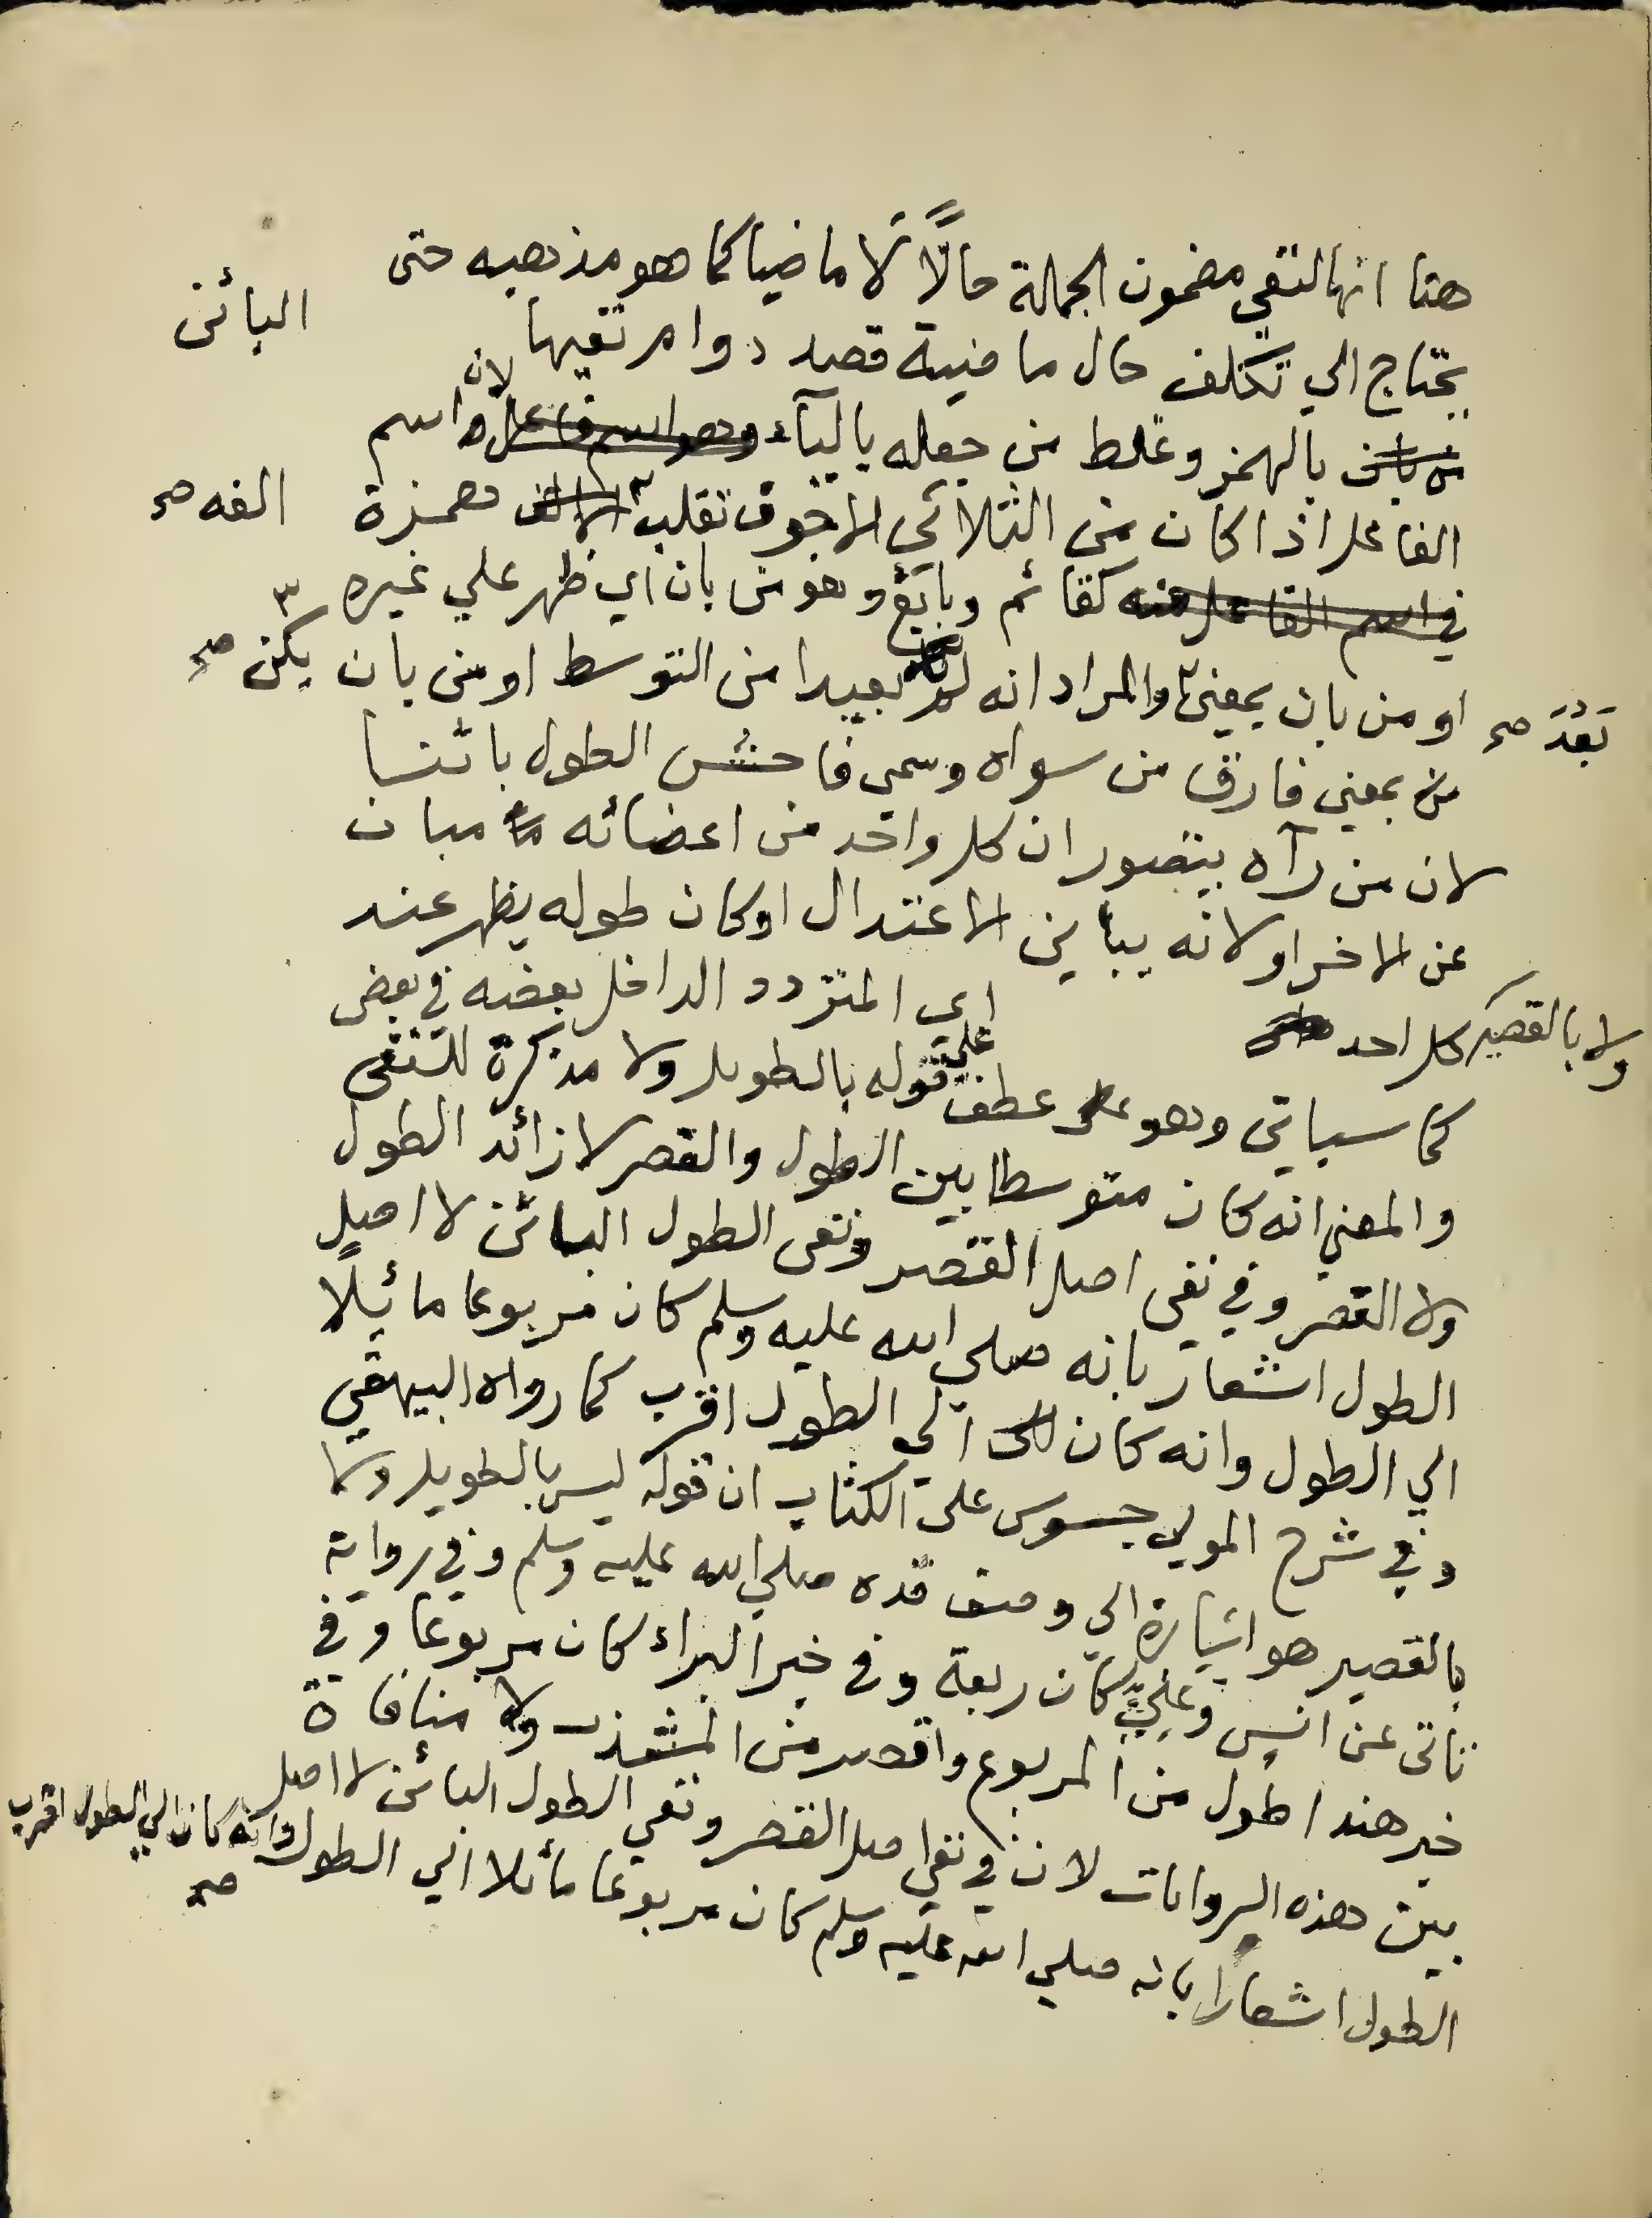 هنا انها لنفي مضمون الجملة حالًا لا ماضيا كما هو مذهبه حتى
يحتاج الي تكلف حال ماضية قصد دوام نفيها البائن
بالهمز وغلط من جعله بالياء وهو اسم فاعل لان اسم
الفاعل اذا كان من الثلاثي الاجوف تقلب الالف همزة الفه صح
في اسم الفاعل منه كقائم وبائع وهو من بان اي ظهر علي غيره
او من بان بمعنى بَعُدَ صح والمراد انه لم يكن صح بعيدا من التوسط او من بان
من بمعني فارق من سواه وسمي فاحش الطول بائنا
لان من رآه يتصور ان كل واحد من اعضائه مبان
عن الاخر او لانه يباين الاعتدال او كان طوله يظهر عند
كل احد ولا بالقصير اي المتردد الداخل بعضه في بعض
كما سياتي وهو عطف علي قوله بالطويل ولا مذكرة للنفي
والمعني انه كان متوسطا بين الطول والقصر لا زائد الطول
ولا القصر وفي نفي اصل القصر ونفي الطول البائن لا اصل
الطول اشعار بانه صلي الله عليه وسلم كان مربوعا مائلًا
الي الطول وانه كان الي الطول اقرب كما رواه البيهقي
وفي شرح المولي جسوس على الكتاب ان قوله ليس بالطويل ولا
بالقصير هو اشارة الي وصف قده صلي الله عليه وسلم وفي رواية
تاتى عن انس وعلي كان ربعة وفي خبر البراء كان مربوعا وفي
خبر هند اطول من المربوع واقصر من المشذب ولا منافاة
بين هذه الروايات لان في نفي اصل القصر ونفي الطول البائن لا اصل
الطول اشعارا بانه صلي الله عليه وسلم كان مربوعا مائلا الي الطول وانه كان الي الطول اقرب
صح